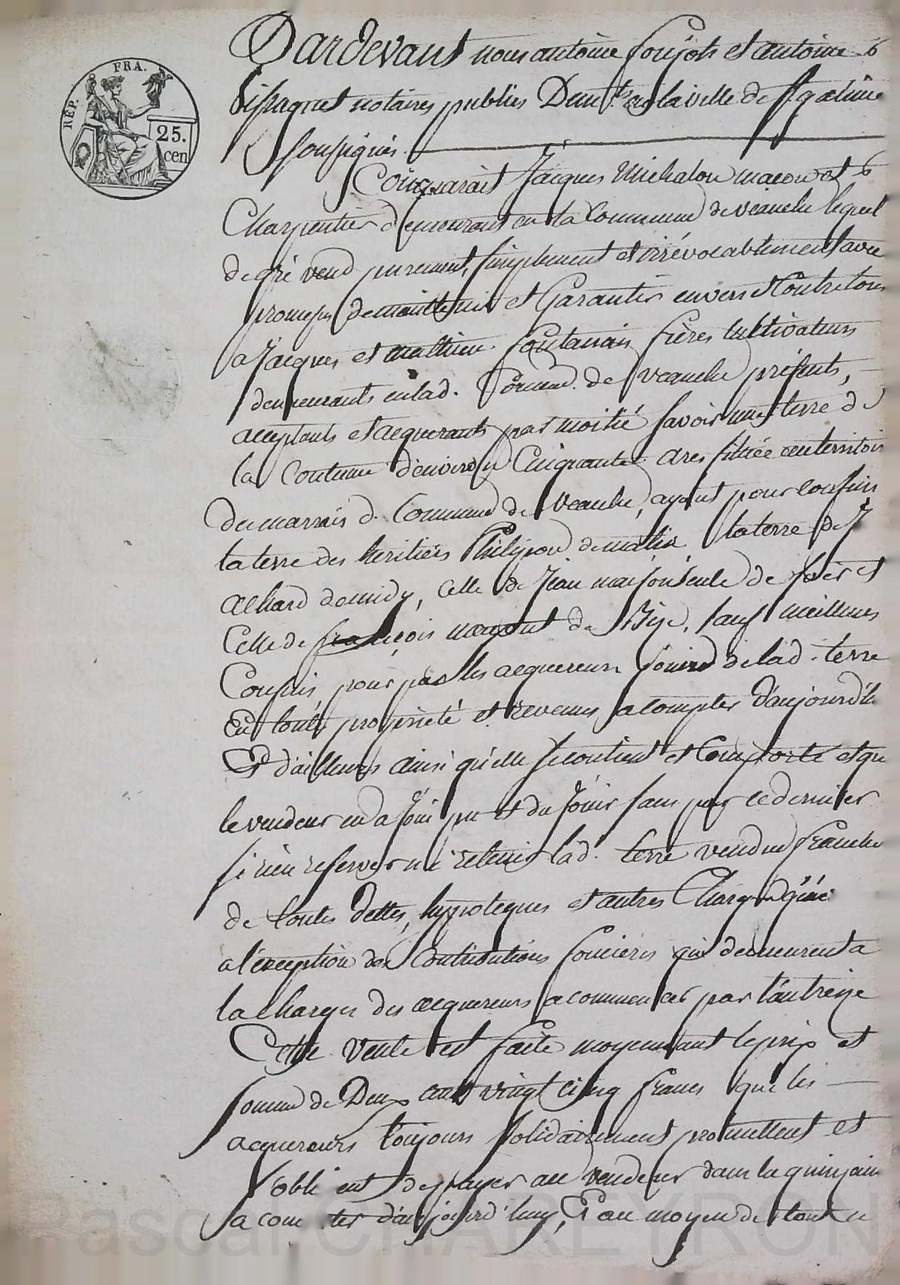 RÉP. FRA.
25.
cen
Pardevant nous antoine et antoine
notaires publics Dem.t a la ville de St galmier
soussignés
Comparait Jacques Michalon macon et
Charpentier demeurant en la Commune de veauche lequel
de gré vend purement, simplement et irrévocablement avec
promesse de maintenir et Garantir envers et Contre tous
a Jacques et mathieu frères Cultivateurs
demeurants en lad. Commune de veauche présents,
acceptants et acquerants par moitié savoir une terre de
la Contenue d'environ Cinquante ares située au territoire
du marais d. Commune de veauche, ayant pour confins
la terre des heritiers Philipon de matin la terre de J
achard de midy, Celle de Jean de soir et
Celle de françois de Bize, sauf meilleurs
Confins pour par les acquereurs Jouir de lad. terre
En toute propriété et revenus a compter d'aujourd'hui
Et d'ailleurs ainsi qu'elle se contient et Comporte et que
le vendeur en a Joui pu et du Jouir sans par ce dernier
s'i rien reserver ni retenir lad. terre vendue franche
de toutes dettes, hypoteques et autres Charges
a l'exception des Contributions foncières qui demeurent a
la Charges des acquereurs a commencer par l'an treize
Cette vente est faite moyennant le prix et
somme de Deux cent vingt cinq francs que les
acquereurs toujours solidairement promettent et
s'obligent de payer au vendeur dans la quinzaine
a compter d'aujourd'huy, Et au moyen de tout ce
Pascal CHAREYRON